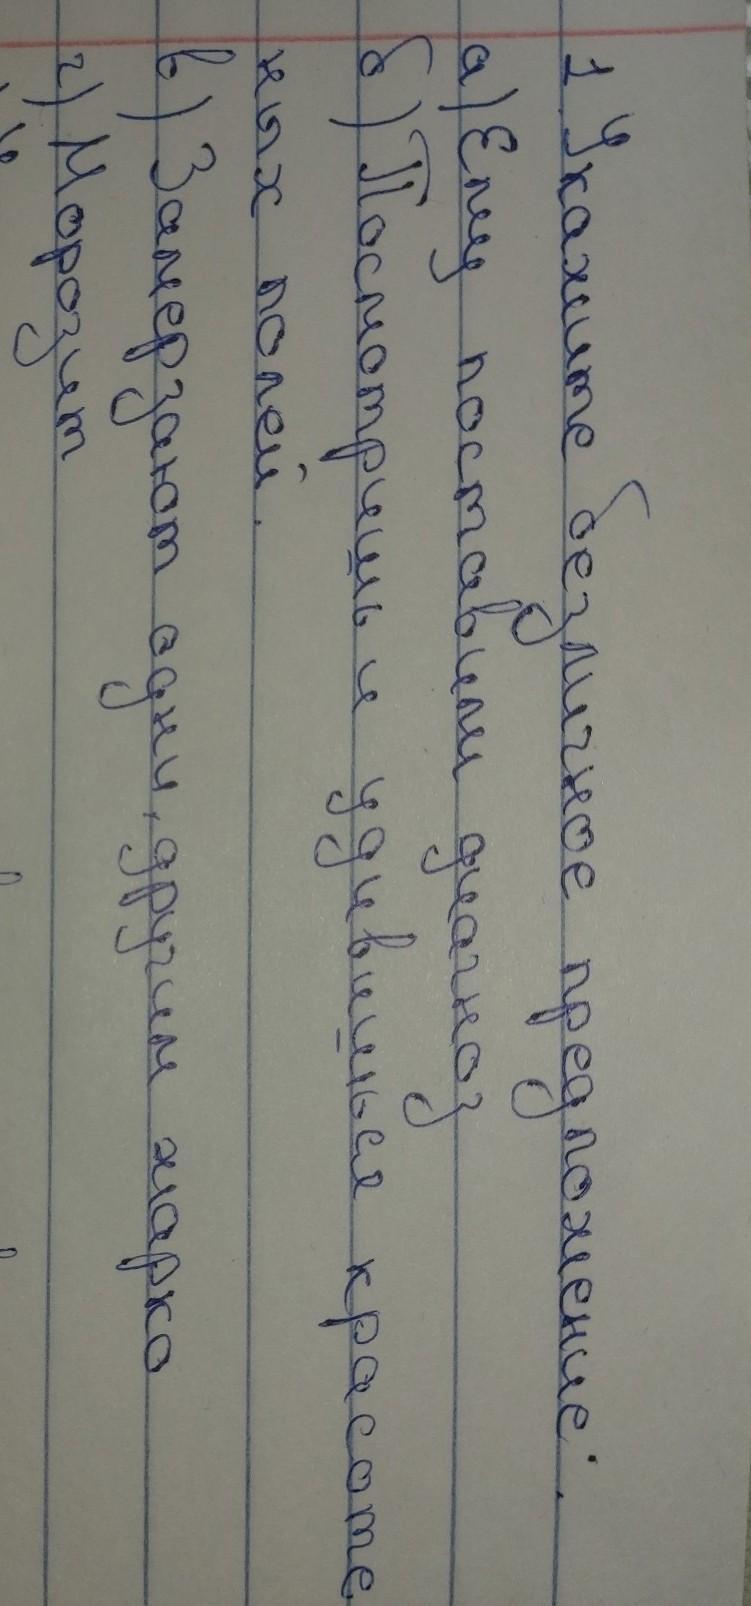 1. Укажите безличное предложение:
а) Ему поставим диагноз
б) Посмотришь и удивишься красоте
ных полей.
в) Замерзают одни, другим жарко
г) Морозит